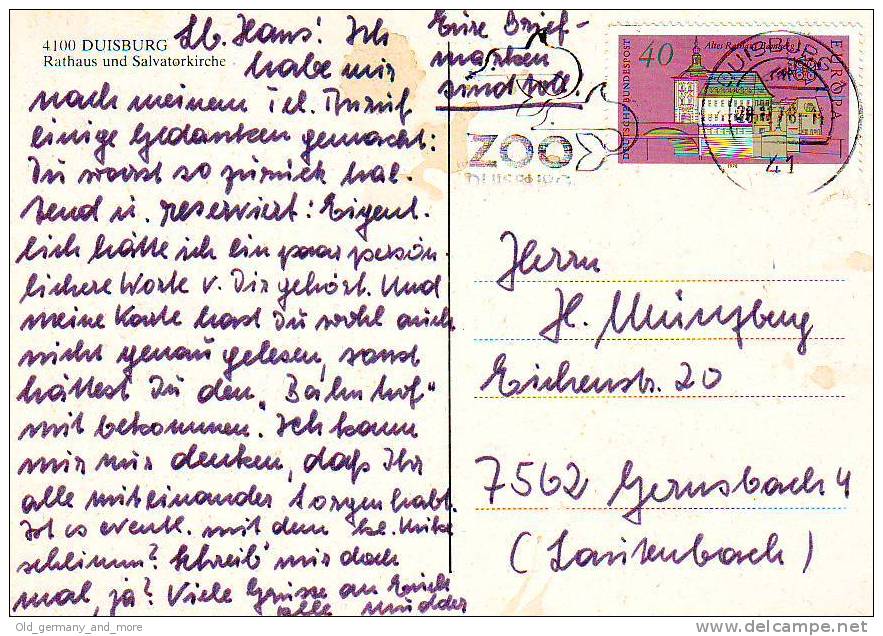 4100 DUISBURG
Rathaus und Salvatorkirche
Lb. Hans! Ich
habe mir
nach meinem Tel. Anruf
einige Gedanken gemacht:
Du warst so zurück hal.
tend u. reserviert: Eigent.
lich hätte ich ein paar persön.
lichere Worte v. Dir gehört. Und
meine Karte hast Du wohl auch
nicht genau gelesen, sonst
hättest Du den "Bahnhof"
mit bekommen. Ich kann
mir nur denken, daß Ihr
alle miteinander Sorgen habt.
Ist es eventl. mit dem
schlimm? Schreib' mir doch
mal, ja? Viele Grüsse an Euch
alle
Eure Brief-
marken
sind toll.
ZOO
DUISBURG
DEUTSCHE BUNDESPOST
40
Altes Rathaus Bamberg
EUROPA
1978
DUISBURG
41
Herrn
H. Münzberg
Eichenstr. 20
7562 Gernsbach 4
(Lautenbach)
Old_germany_and_more
delcampe.net